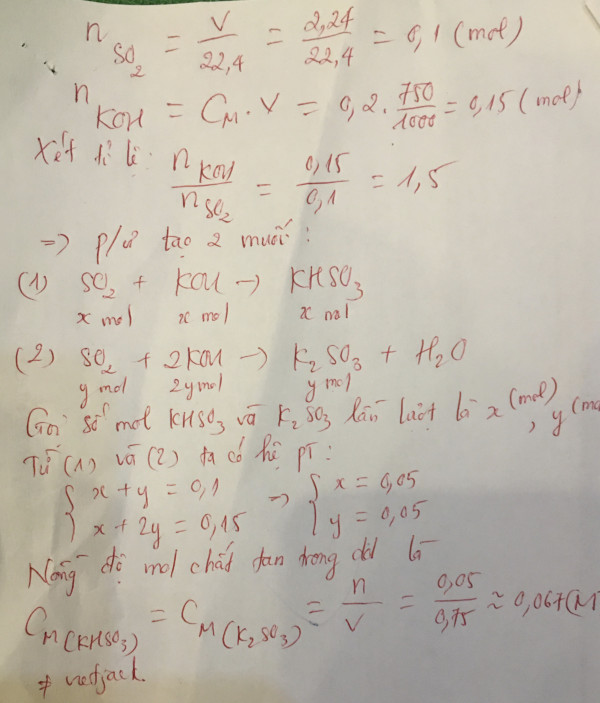 n SO2 = V/22,4 = 2,24/22,4 = 0,1 (mol)
n KOH = CM . V = 0,2 . 750/1000 = 0,15 (mol)
Xét tỉ lệ: n KOH / n SO2 = 0,15/0,1 = 1,5
=> p/ư tạo 2 muối:
(1) SO2 + KOH -> KHSO3
x mol x mol x mol
(2) SO2 + 2KOH -> K2SO3 + H2O
y mol 2y mol y mol
Gọi số mol KHSO3 và K2SO3 lần lượt là x (mol), y (mo
Từ (1) và (2) ta có hệ pt:
{ x + y = 0,1 => { x = 0,05
{ x + 2y = 0,15 { y = 0,05
Nồng độ mol chất tan trong dd là
CM(KHSO3) = CM(K2SO3) = n/V = 0,05/0,75 ≈ 0,067(M
# vietjack.